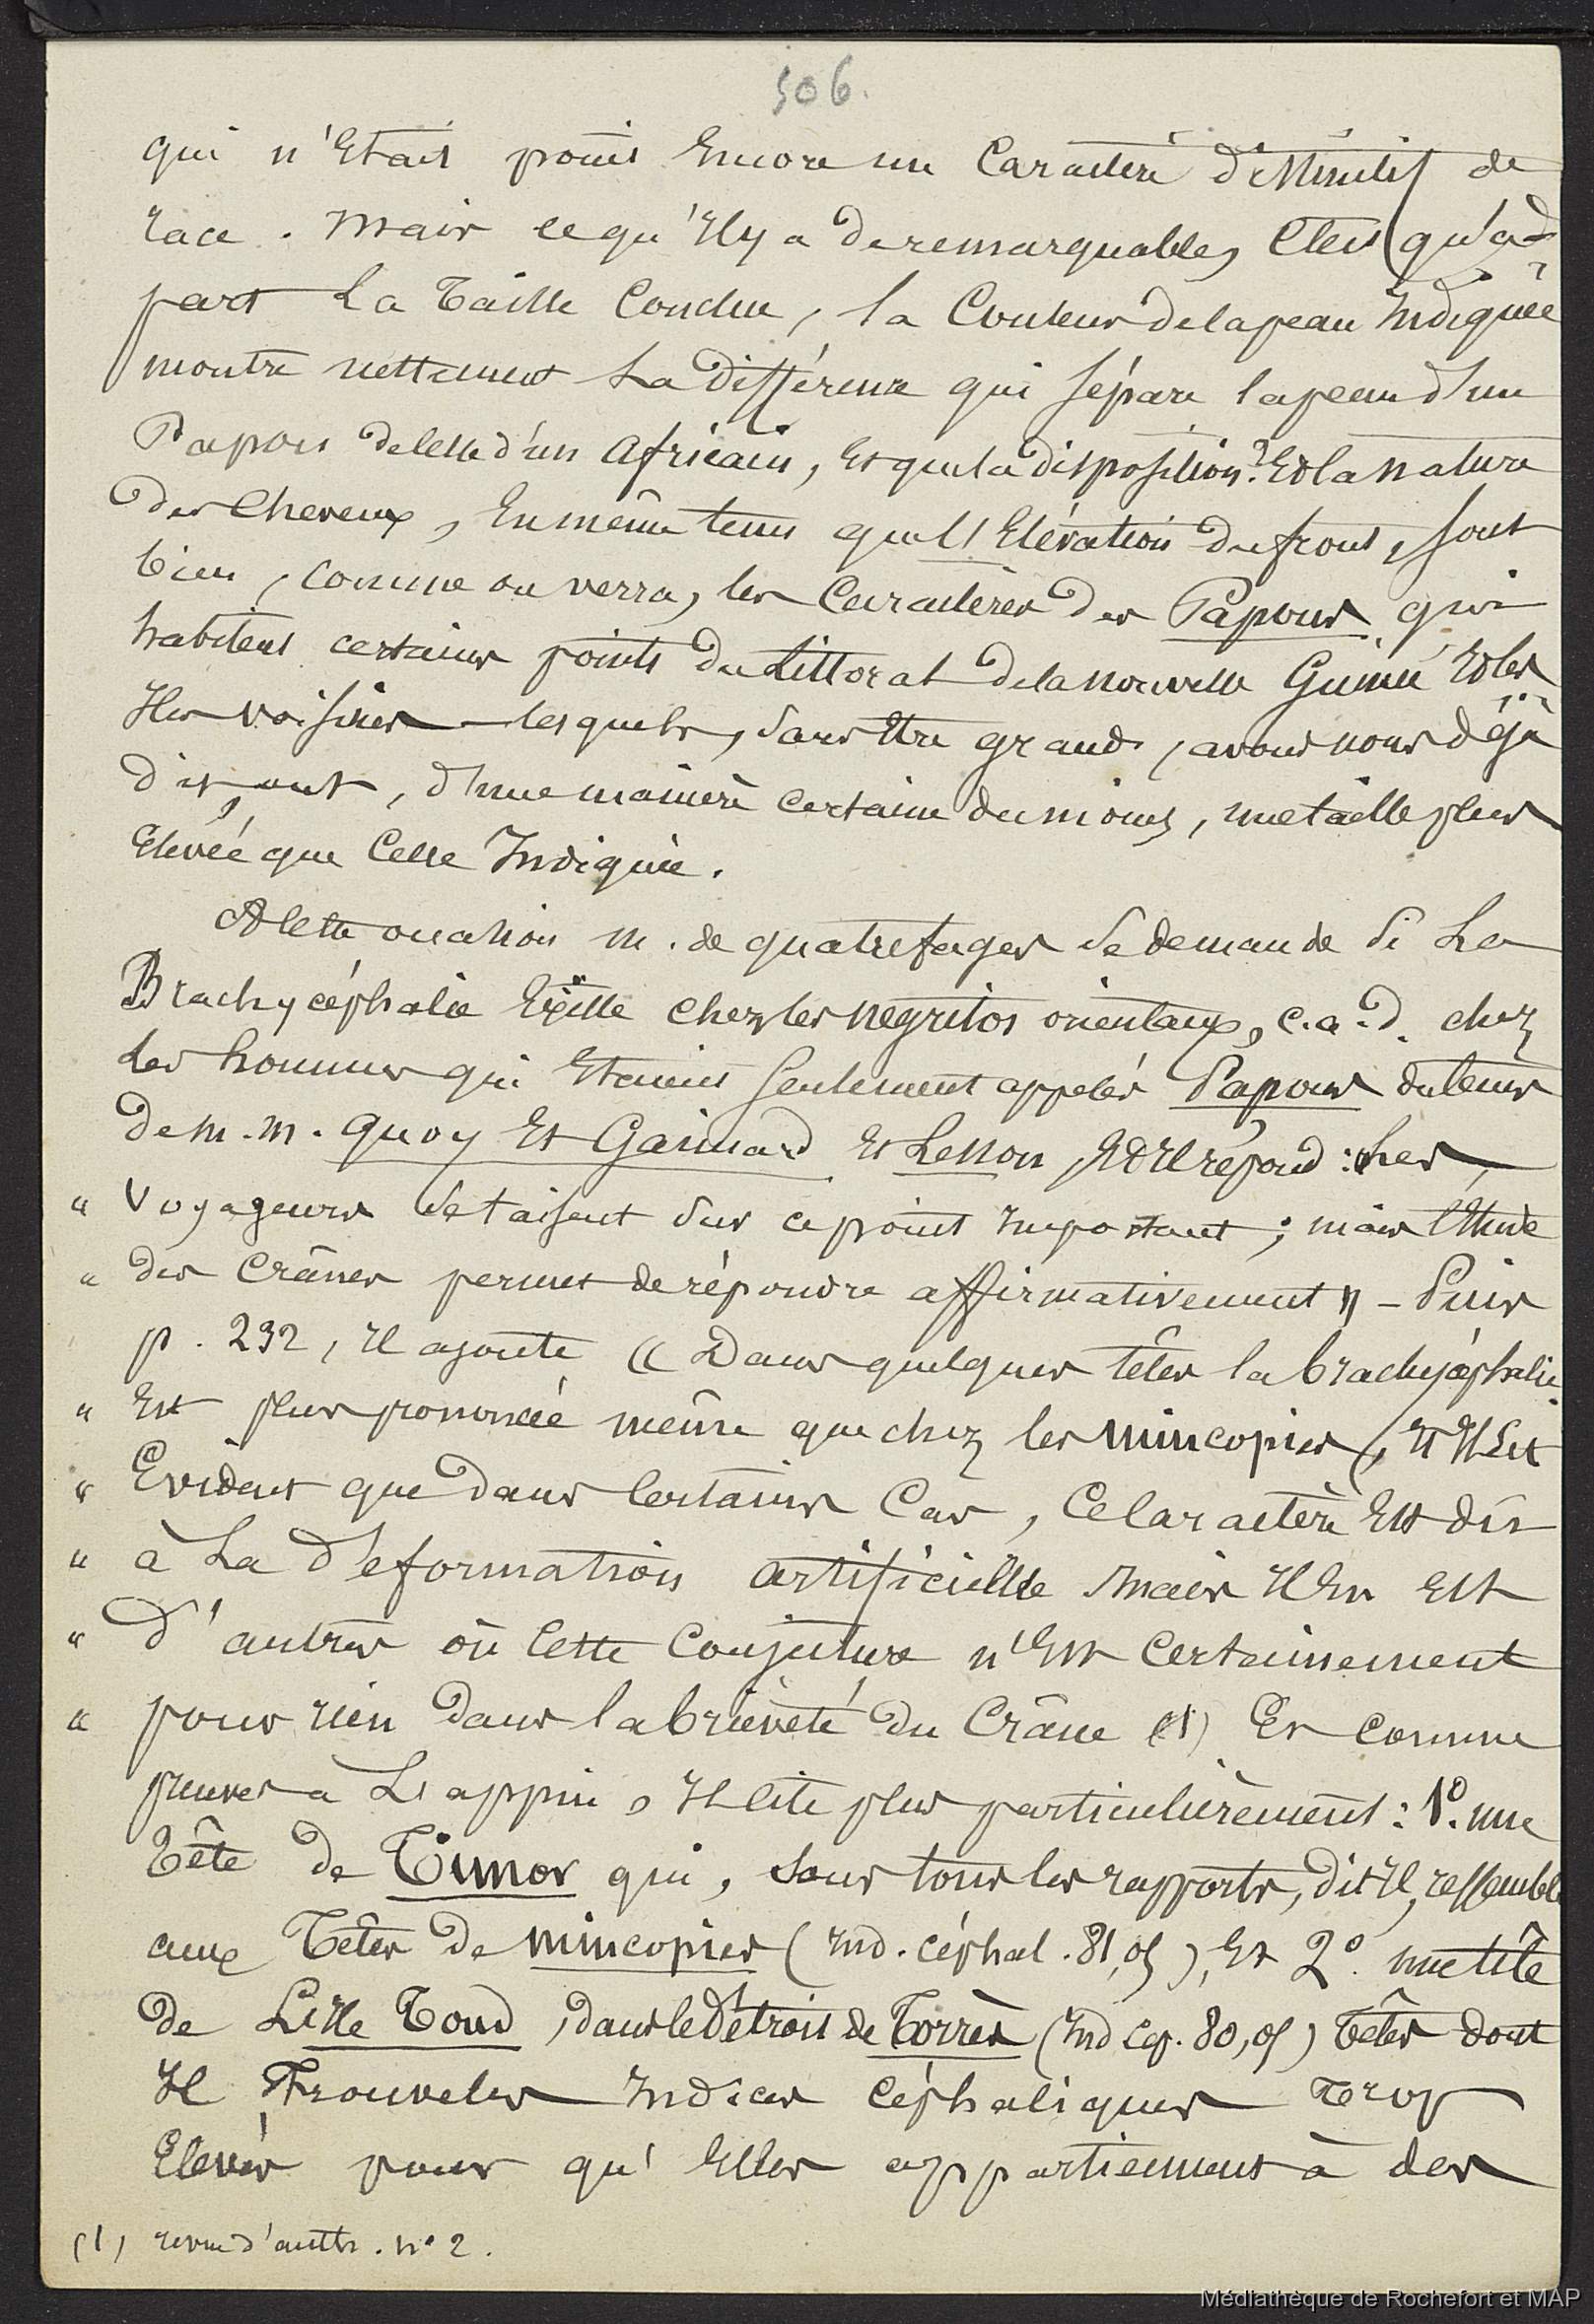 506.
qui n'Etait point Encore un Caractère distinctif de
race. Mais ce qu'Il y a de remarquable, C'est qu'à
part La Taille Conclue, la Couleur de la peau Indiquée
montre nettement La différence qui sépare la peau d'un
Papou de celle d'un Africain, et que la disposition? Et la nature
des Cheveux, En même tems que l'Elévation du front, sont
bien, comme on verra, les Caractères des Papous qui
habitent certains points du Littoral de la nouvelle Guinée Et les
Iles voisines – lesquels, sans Etre grands, avons nous déjà
dit ont, d'une manière certaine du moins, une taille plus
Elevée que Celle Indiquée.
A Cette occasion M. de quatrefages se demande si La
Brachycéphalie Existe chez les negritos orientaux, c.a.d. chez
Les hommes qui Etaient seulement appelés Papous du tems
de M.M. Quoy Et Gaimard Et Lesson, Et Il répond : Les
" Voyageurs se taisent sur ce point Important ; mais l'Etude
" des Crânes permet de répondre affirmativement » – Puis
p. 232, Il ajoute « Dans quelques têtes la brachycéphalie
" Est plus prononcée même que chez les mincopies, Il Est
" Evident que dans Certains Cas, Ce Caractère Est dû
" à La déformation artificielle mais Il En Est
" d'autres où Cette Conjecture n'Est Certainement
" pour rien dans la brièveté du Crâne (1) Et comme
preuves à L'appui, Il Cite plus particulièrement : 1º. une
Tête de Timor qui, sous tous les rapports, dit Il, ressemble
aux Têtes de mincopies (Ind. céphal. 81,05), Et 2º. une tête
de L'Ile Toud, dans le Détroit de Torrès (Ind cep. 80,05) Têtes dont
Il Trouve les Indices céphaliques Trop
Elevés pour qu'Elles appartiennent à des
(1) revue d'anth. nº 2.
Médiathèque de Rochefort et MAP